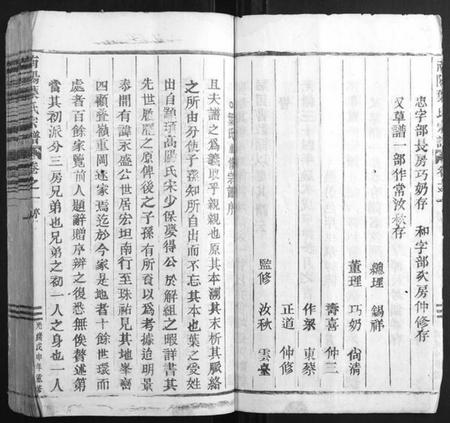 南陽葉氏宗譜
卷之一
忠字部長房巧奶存 和字部玖房仲修存
又草譜一部作常汝秋存
總理 錫祥
董理 巧奶 尚清
壽喜 仲三
作聚 東蔡
正道 仲修
監修 汝秋 雲臺
葉氏重修宗譜序
且夫譜之為義取乎親親也原其本溯其末析其脈絡
之所由分使子孫知所自出而不忘其本也葉之受姓
出自顓頊高陽氏宋少保夢得公於解組之暇詳書其
先世歷歷之原俾後之子孫有所資以為考據迨明景
泰間有諱永盛公世居宏坦南行至珠祐見其地峯巒
四顧叠嶺重岡遂家焉迄於今家是地者十餘世環而
處者百餘家覽前人題辭贈序辨之復悉無俟贅述第
當其初派分三房兄弟也兄弟之初一人之身也一人
南陽葉氏宗譜
卷之一
序
光緒戊申年重修